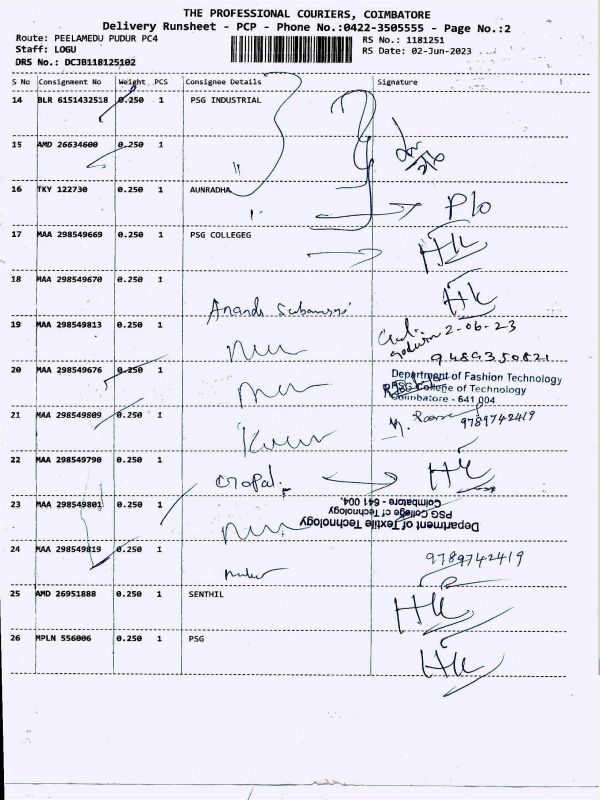 THE PROFESSIONAL COURIERS, COIMBATORE
Delivery Runsheet - PCP - Phone No.:0422-3505555 - Page No.:2
Route: PEELAMEDU PUDUR PC4
RS No.: 1181251
Staff: LOGU
RS Date: 02-Jun-2023
DRS No.: DCJB118125102
S No Consignment No Weight PCS Consignee Details Signature
14 BLR 6151432518 0.250 1 PSG INDUSTRIAL
15 AMD 26634600 0.250 1
16 TKY 122730 0.250 1 AUNRADHA
P/o
17 MAA 298549669 0.250 1 PSG COLLEGEG
HK
18 MAA 298549670 0.250 1
HK
19 MAA 298549813 0.250 1
2-06-23
9489350821
20 MAA 298549676 0.250 1
Department of Fashion Technology
PSG College of Technology
Coimbatore - 641 004
21 MAA 298549809 0.250 1
9789742419
22 MAA 298549790 0.250 1
Gopal
HK
23 MAA 298549801 0.250 1
Department of Textile Technology
PSG College of Technology
Coimbatore - 641 004.
24 MAA 298549819 0.250 1
9789742419
25 AMD 26951888 0.250 1 SENTHIL
HK
26 MPLN 556006 0.250 1 PSG
HK